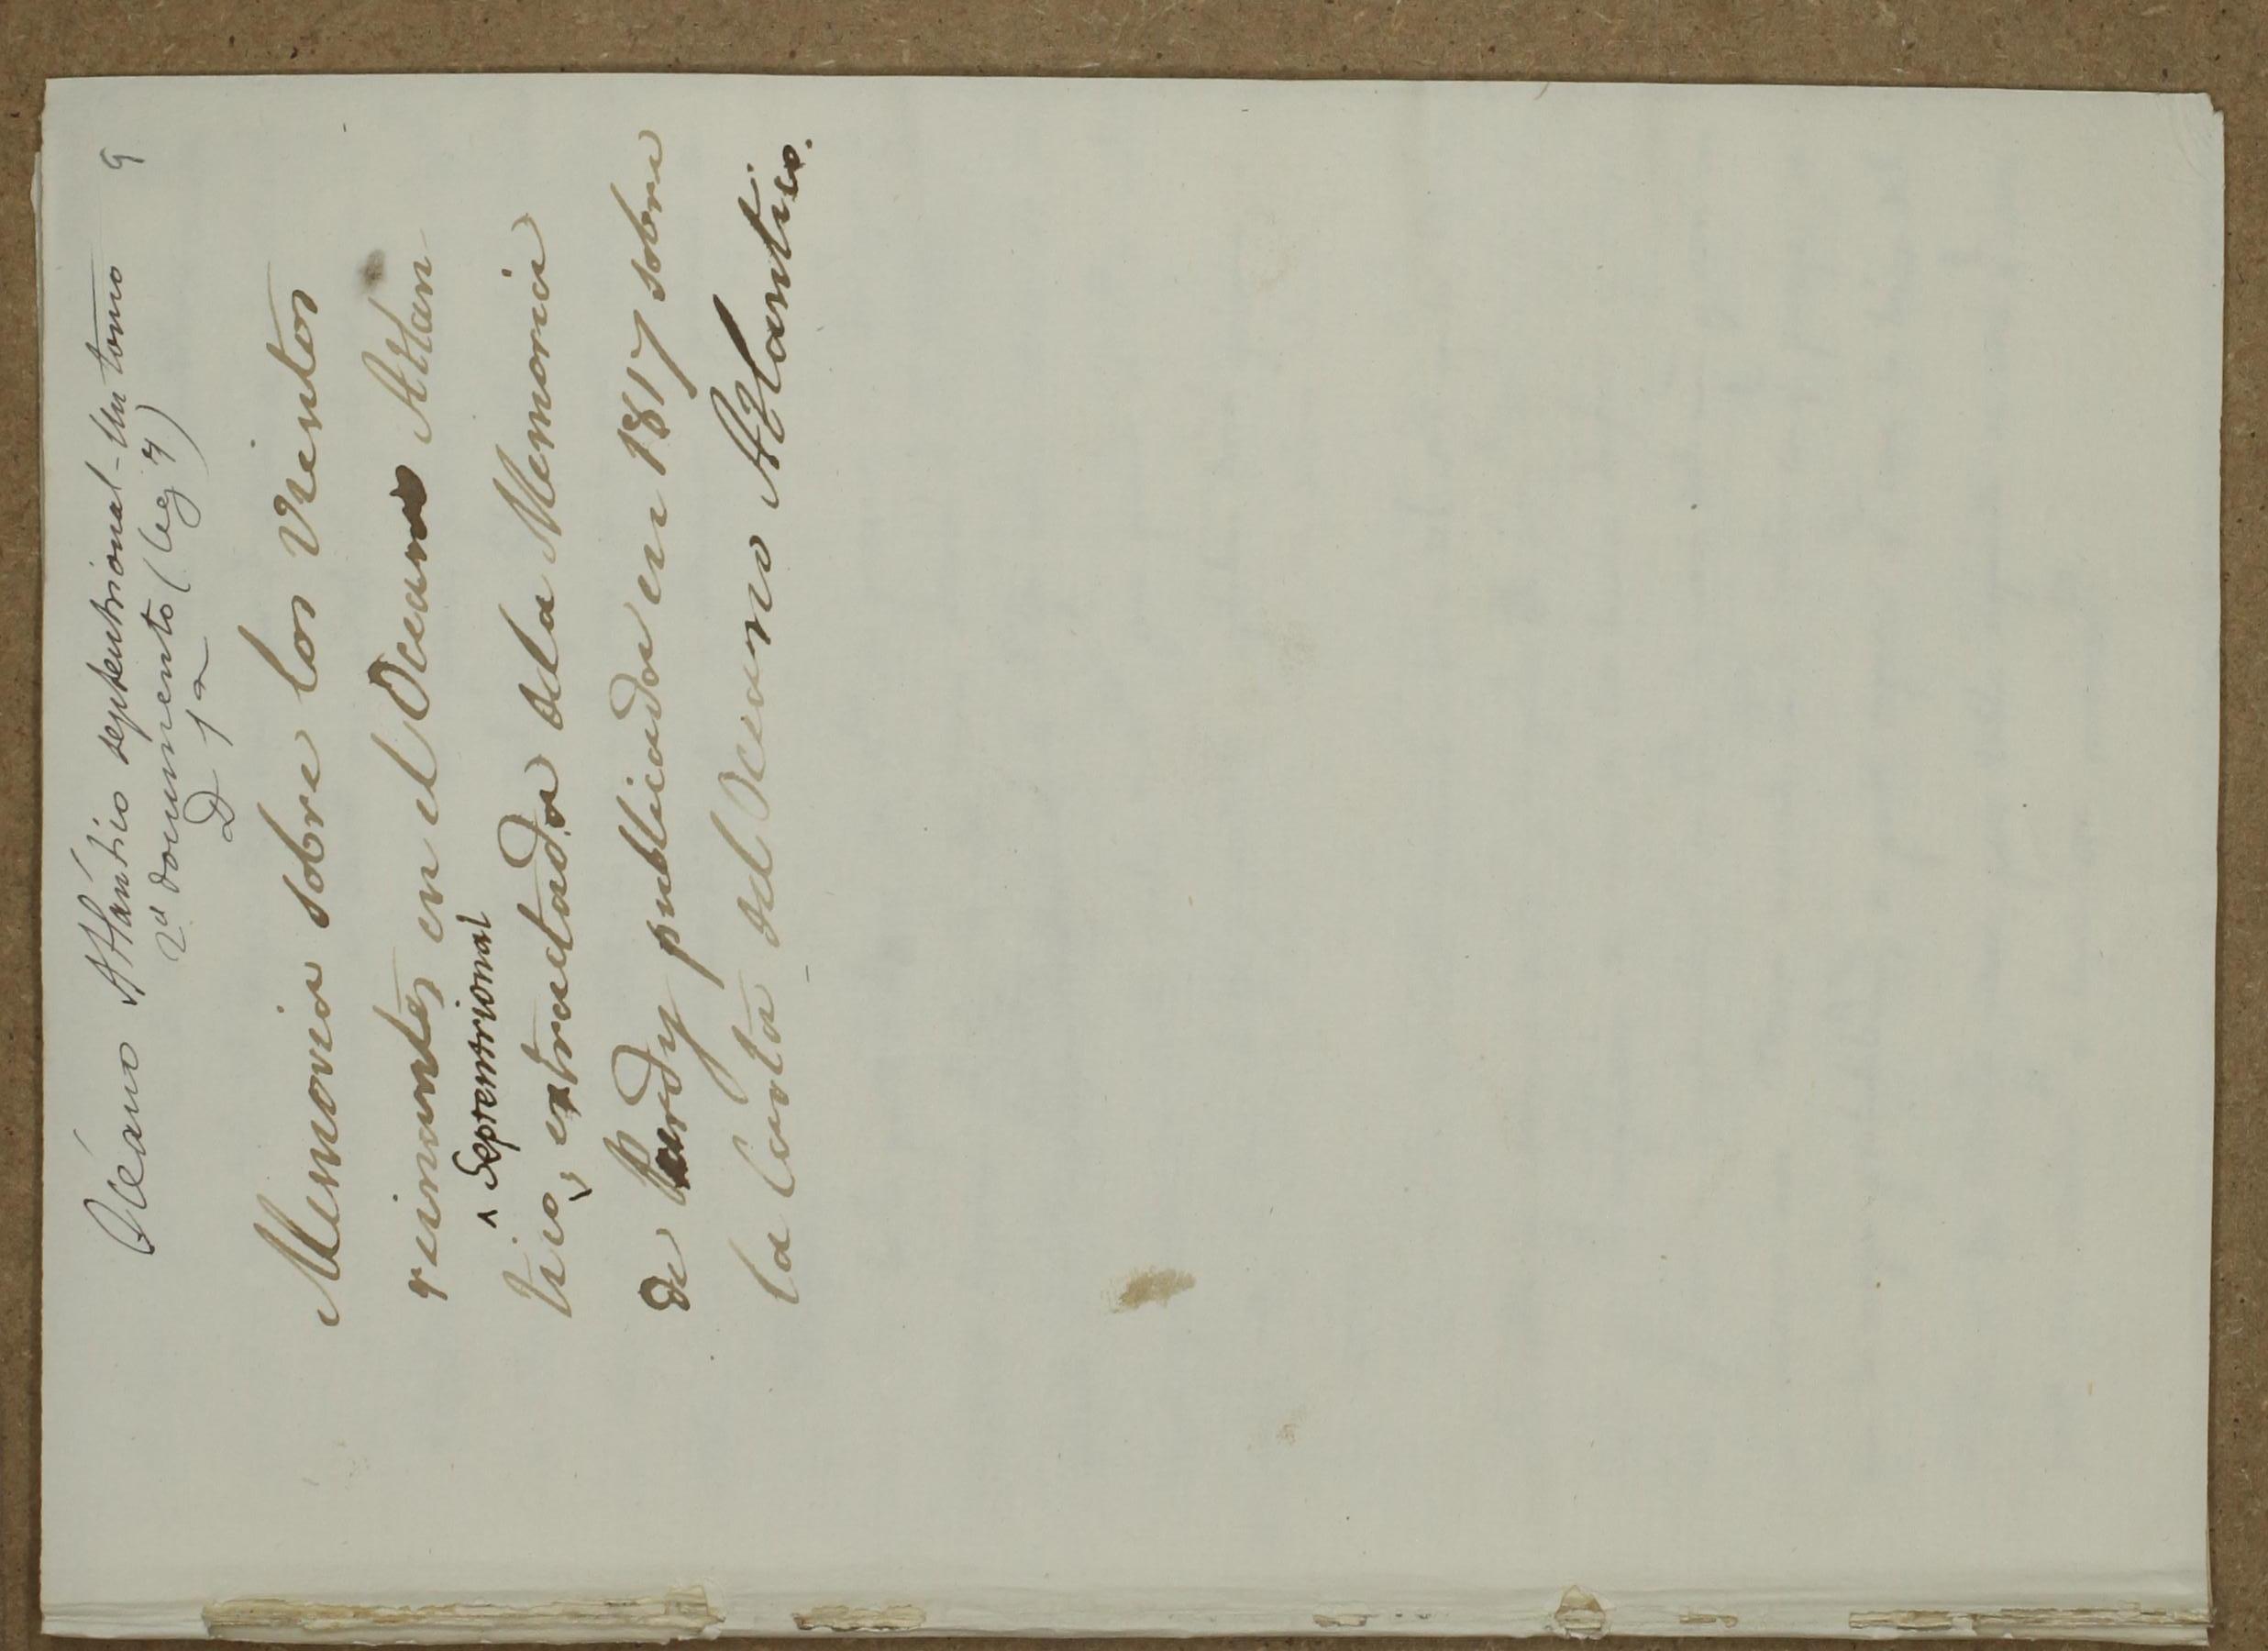 9
Océano Atlántico septentrional - Un tomo
2º documento (Leg 7)
D 1ª
Memoria sobre los Vientos
reinantes en el Oceano Atlan
^ Septentrional
tico, extractada de la Memoria
de Purdy publicada en 1817 sobre
la Carta del Oceano Atlantico.